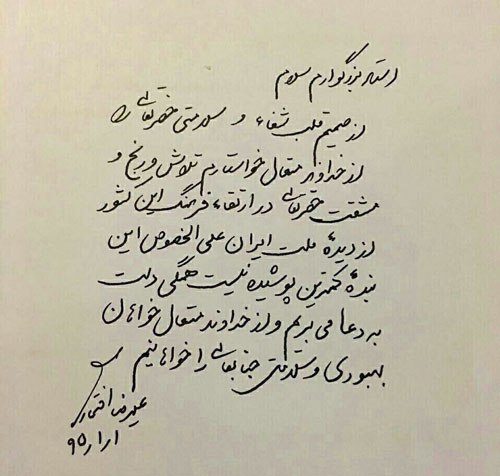 استاد بزرگوارم سلام
از صمیم قلب شفاء و سلامتی حضرتعالی را
از خداوند متعال خواستارم تلاش و رنج و
مشقت حضرتعالی در ارتقاء فرهنگ این کشور
از دیدهٔ ملت ایران علی الخصوص این
بندهٔ کمترین پوشیده نیست همگی دست
به دعا می بریم و از خداوند متعال خواهان
بهبودی و سلامتی جنابعالی را خواهانیم
علیرضا افتخاری
۹۵/۱/۱